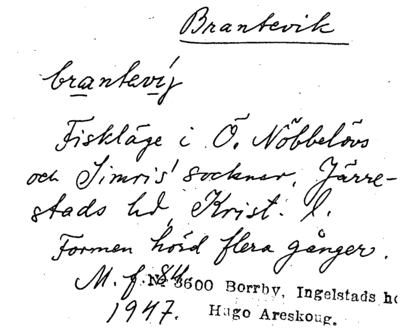 Brantevik
brantevíg
Fiskläge i Ö. Nöbbelövs
och Simris' socknar, Järre-
stads hd, Krist. l.
Formen hörd flera gånger.
M. f. 84.
№ 3600 Borrby, Ingelstads hd
1947. Hugo Areskoug.